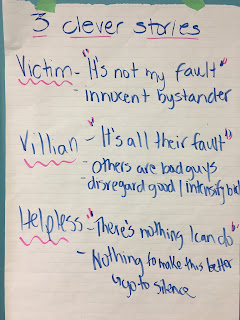 3 clever stories
Victim - "It's not my fault"
- innocent bystander
Villian - "It's all their fault"
- others are bad guys
disregard good / intensify bad
Helpless - "There's nothing I can do"
- Nothing to make this better
go to silence